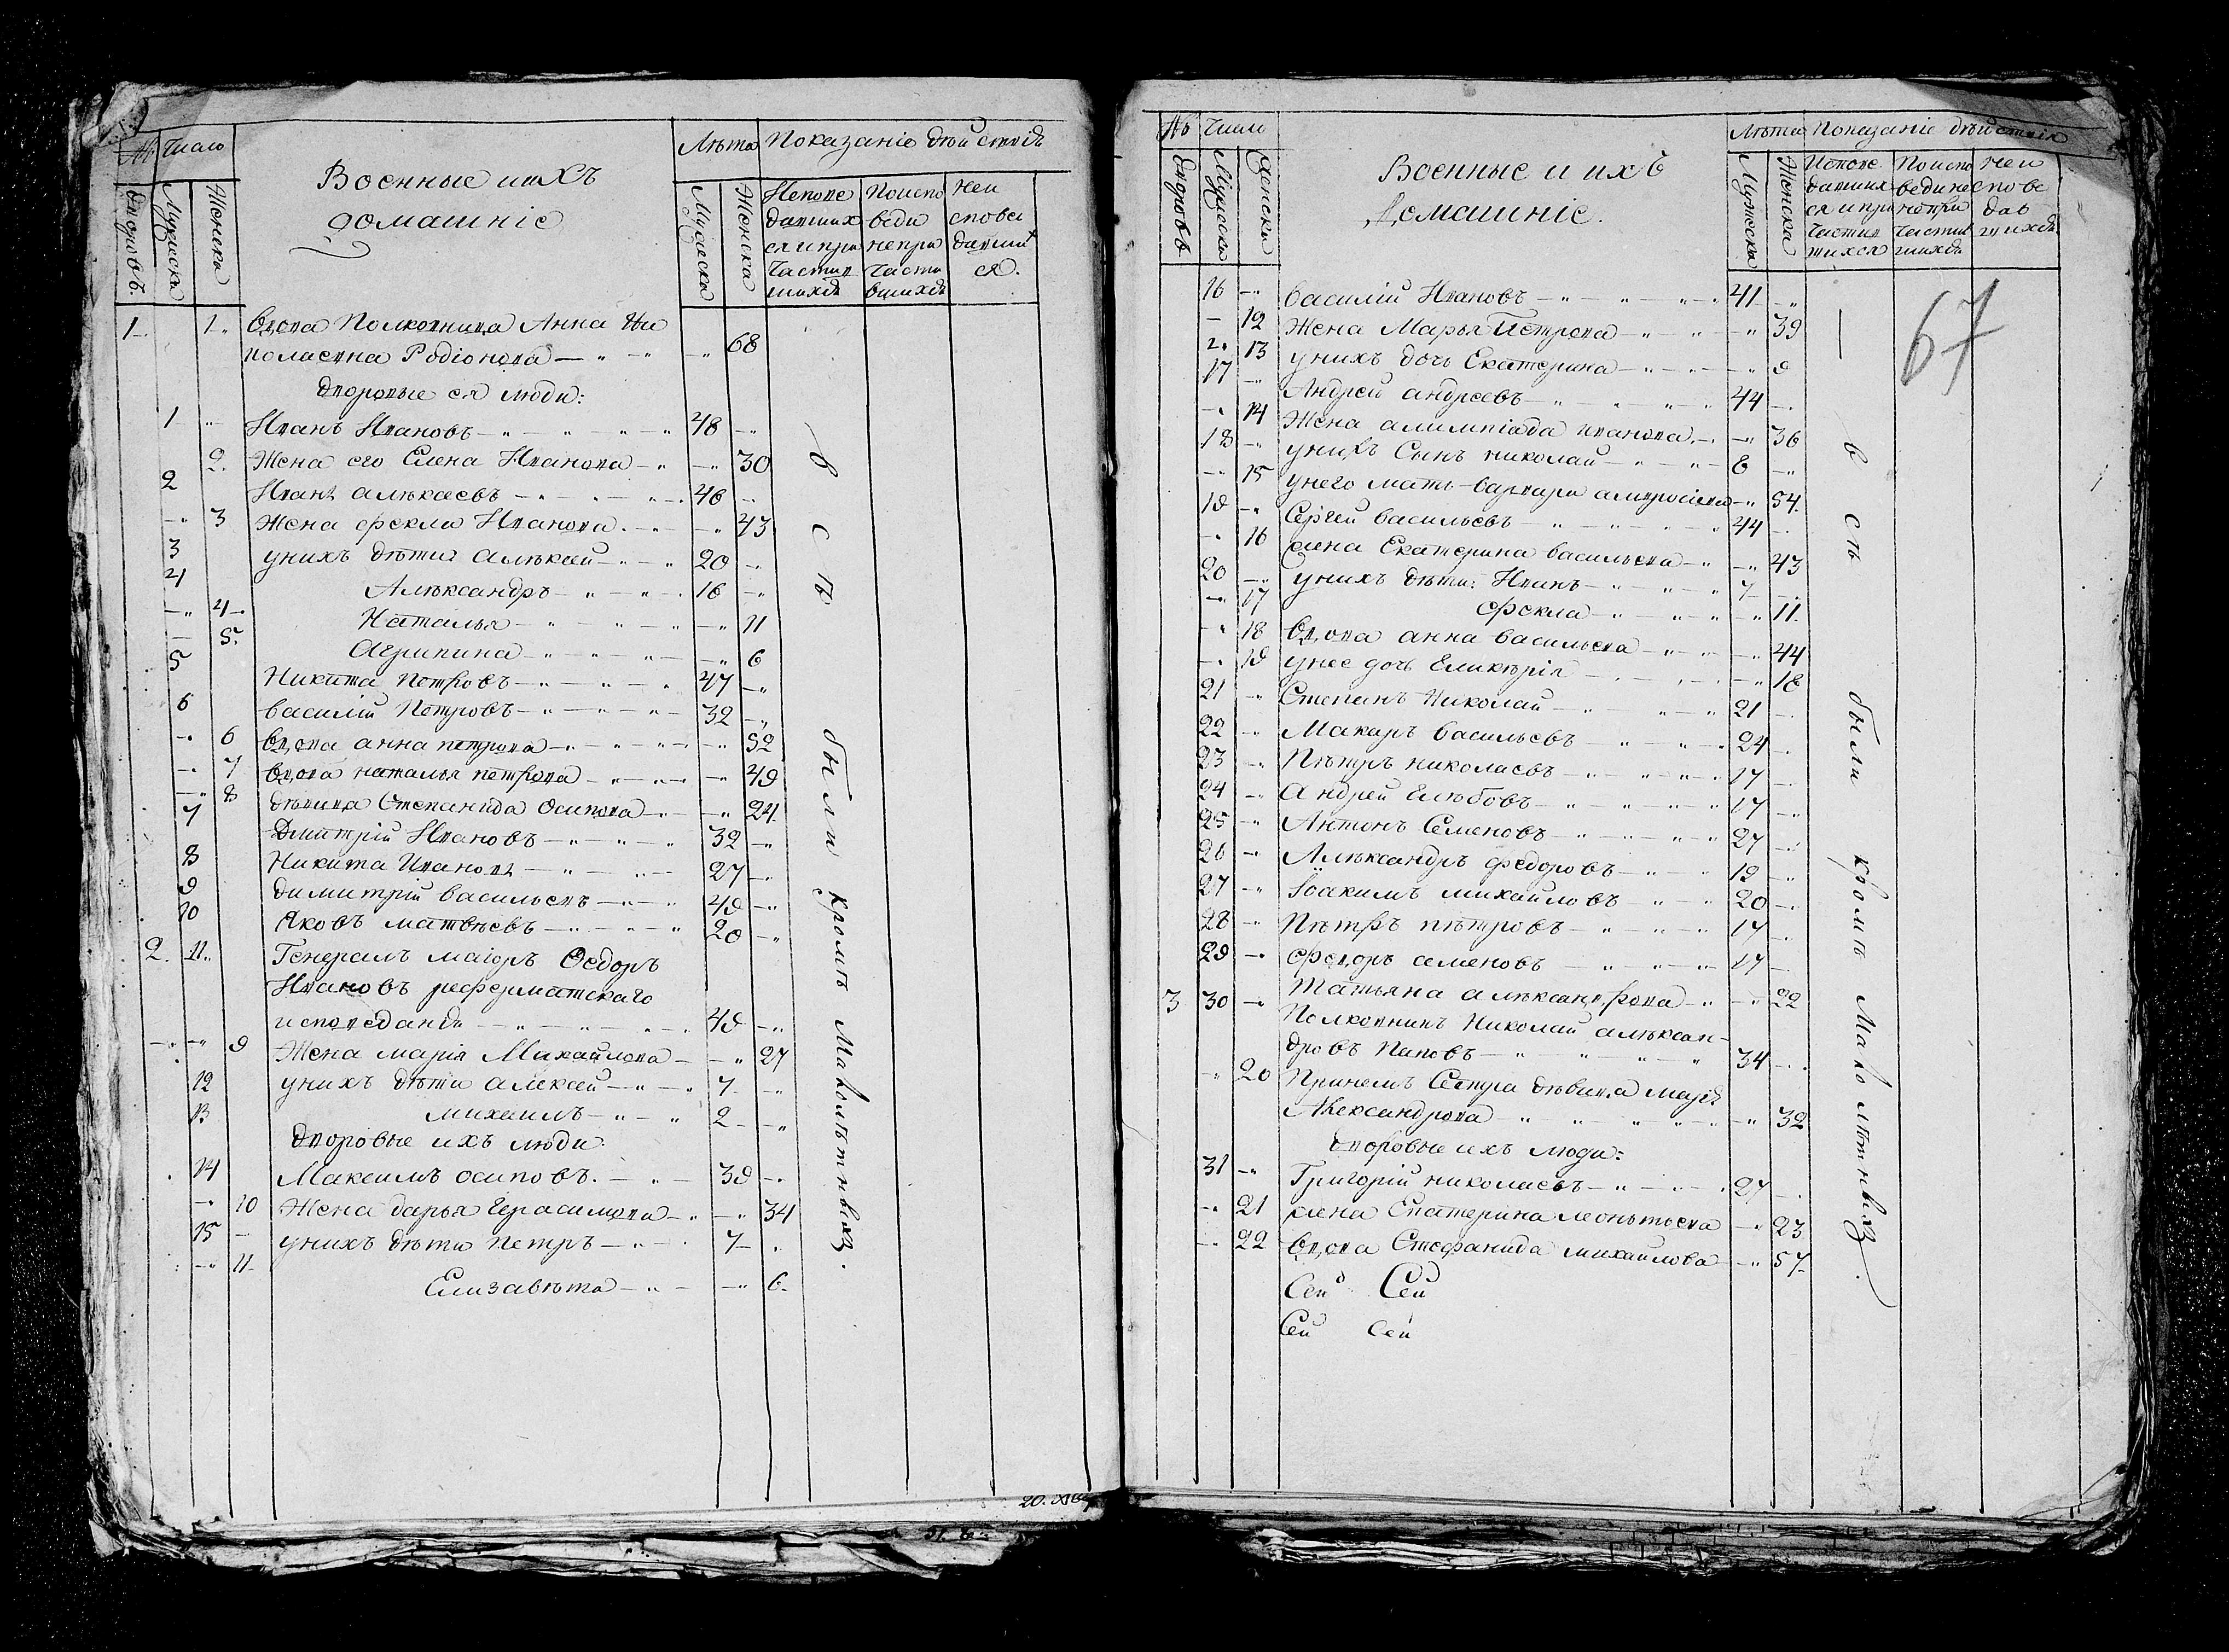 № Число
Военные и ихъ
домашніе
Лѣта Показаніе дѣйствій
дворовъ. Мужеска Женска
Мужеска Женска
Исповедавшихся и причастившихъ
По исповеди не причастившихъ
Не исповедавшися.
1 1 Вдова Полковница Анна Ни
колаевна Родіонова 68
Дворовые ея люди:
1 Иванъ Ивановъ 48
2. Жена его Елена Иванова 30
2 Иванъ алѣксеевъ 46
3 Жена фекла Иванова 43
3 у нихъ дѣти алѣксей 20
4 Алѣксандръ 16
4 Наталья 11
5. Агрипина 6
5 Никита Петровъ 47
6 Василій Петровъ 32
6 Вдова анна петрова 52
7 Вдова наталья петрова 49
8 дѣвица Степанида Осипова 24
7 Дмитрій Ивановъ 32
8 Никита Ивановъ 27
9 димитрій васильевъ 49
10 Яковъ матвѣевъ 20
2. 11. Генералъ маіоръ Ѳедоръ
Ивановъ реформатскаго
исповеданія 49
9 Жена марія Михайлова 27
12 у нихъ дѣти алексей 7
13 михаилъ 2
дворовые ихъ люди:
14 Максимъ осиповъ. 39
10 Жена дарья Герасимова 34
15 у нихъ дѣти петръ 7
11 Елизавѣта 6
всѣ были кромѣ Маколѣтныхъ.
№ Число
Военные и ихъ
Домашніе.
Лѣта Показаніе дѣйствія
дворовъ Мужеска Женска
Мужеска Женска
Исповедавшихся и причастившихся
По исповеди не причастившихъ
Не исповедавшихъ
67
16 Василій Ивановъ 41
12 Жена Марья Петрова 39
13 у нихъ дочь Екатерина 9
17 Андрей андреевъ 44
14 Жена алимпіада иванова 36
18 у нихъ Сынъ николай 8
15 у него мать варвара амвросіева 54
19 Сергей васильевъ 44
16 жена Екатерина васильева 43
20 у нихъ дѣти: Иванъ 7
17 фекла 11
18 Вдова анна васильева 44
19 у нее дочь Еликѣрія 18
21 Степанъ Николай 21
22 Макаръ васильевъ 24
23 Пѣтръ николаевъ 17
24 Андрей Глѣбовъ 17
25 Антонъ Семеновъ 27
26 Алѣксандръ федоровъ 19
27 Іоакимъ михайловъ 20
28 Пѣтръ пѣтровъ 17
29 федоръ семеновъ 17
Татьяна алѣксандрова 22
3 30 Полковникъ Николай алѣксан-
дровъ Паповъ 34
20 При немъ Сестра дѣвица марія
Александрова 32
дворовые ихъ люди:
31 Григорій николаевъ 27
21 жена Екатерина леонтьева 23
22 Вдова Стефанида михайлова 57
Сей Сей
Сей Сей
всѣ были кромѣ Маколѣтныхъ.